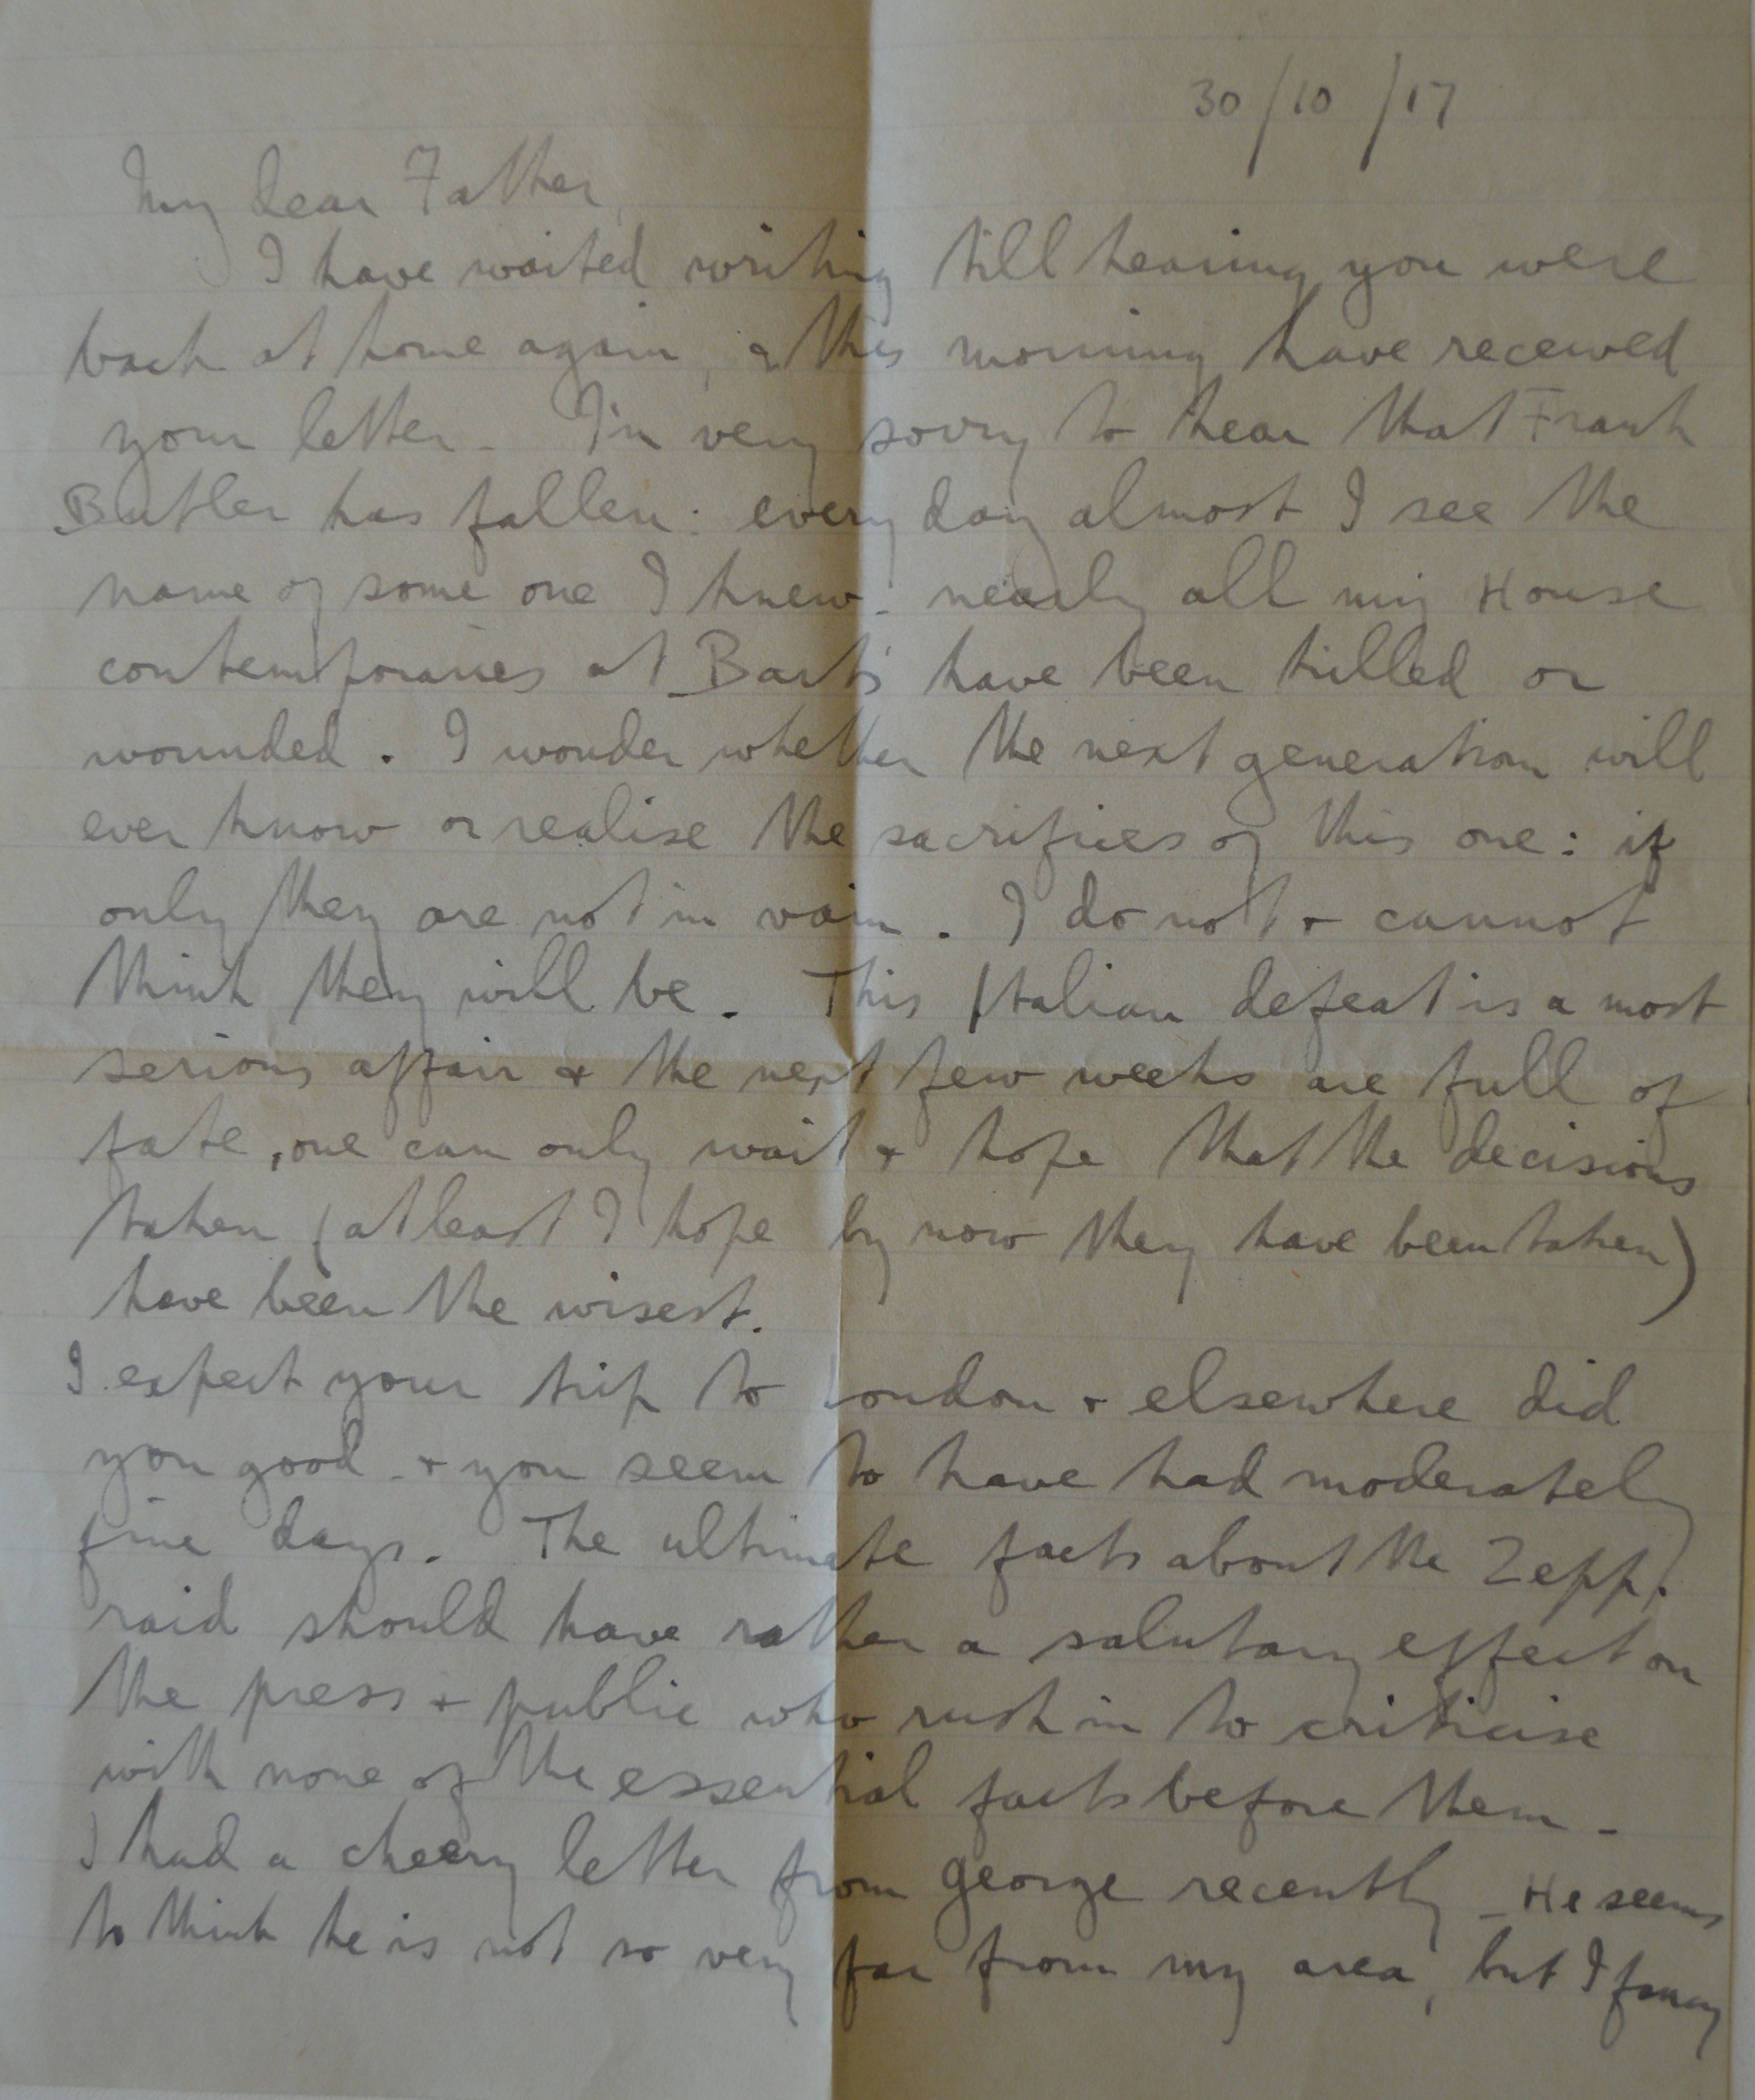 30/10/17
My dear Father,
I have waited writing till hearing you were
back at home again, & this morning have received
your letter - I'm very sorry to hear that Frank
Butler has fallen: every day almost I see the
name of some one I knew: nearly all my House
contemporaries at Bart's have been killed or
wounded. I wonder whether the next generation will
ever know or realise the sacrifices of this one: if
only they are not in vain. I do not & cannot
think they will be. This Italian defeat is a most
serious affair & the next few weeks are full of
fate, one can only wait & hope that the decisions
taken (at least I hope by now they have been taken)
have been the wisest.
I expect your trip to London & elsewhere did
you good - & you seem to have had moderately
fine days. The ultimate facts about the Zepp.
raid should have rather a salutary effect on
the press & public who rush in to criticise
with none of the essential facts before them -
I had a cheery letter from George recently - He seems
to think he is not so very far from my area, but I fancy